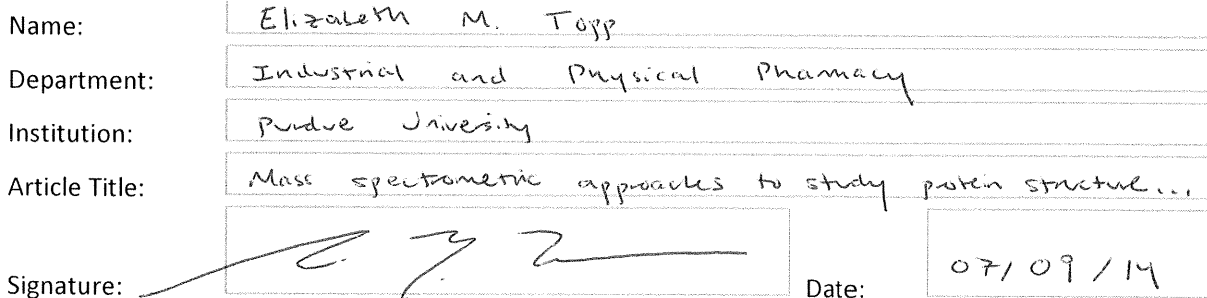 Name: Elizabeth M. Topp
Department: Industrial and Physical Pharmacy
Institution: Purdue University
Article Title: Mass spectrometric approaches to study protein structure...
Signature: Date: 07/09/14